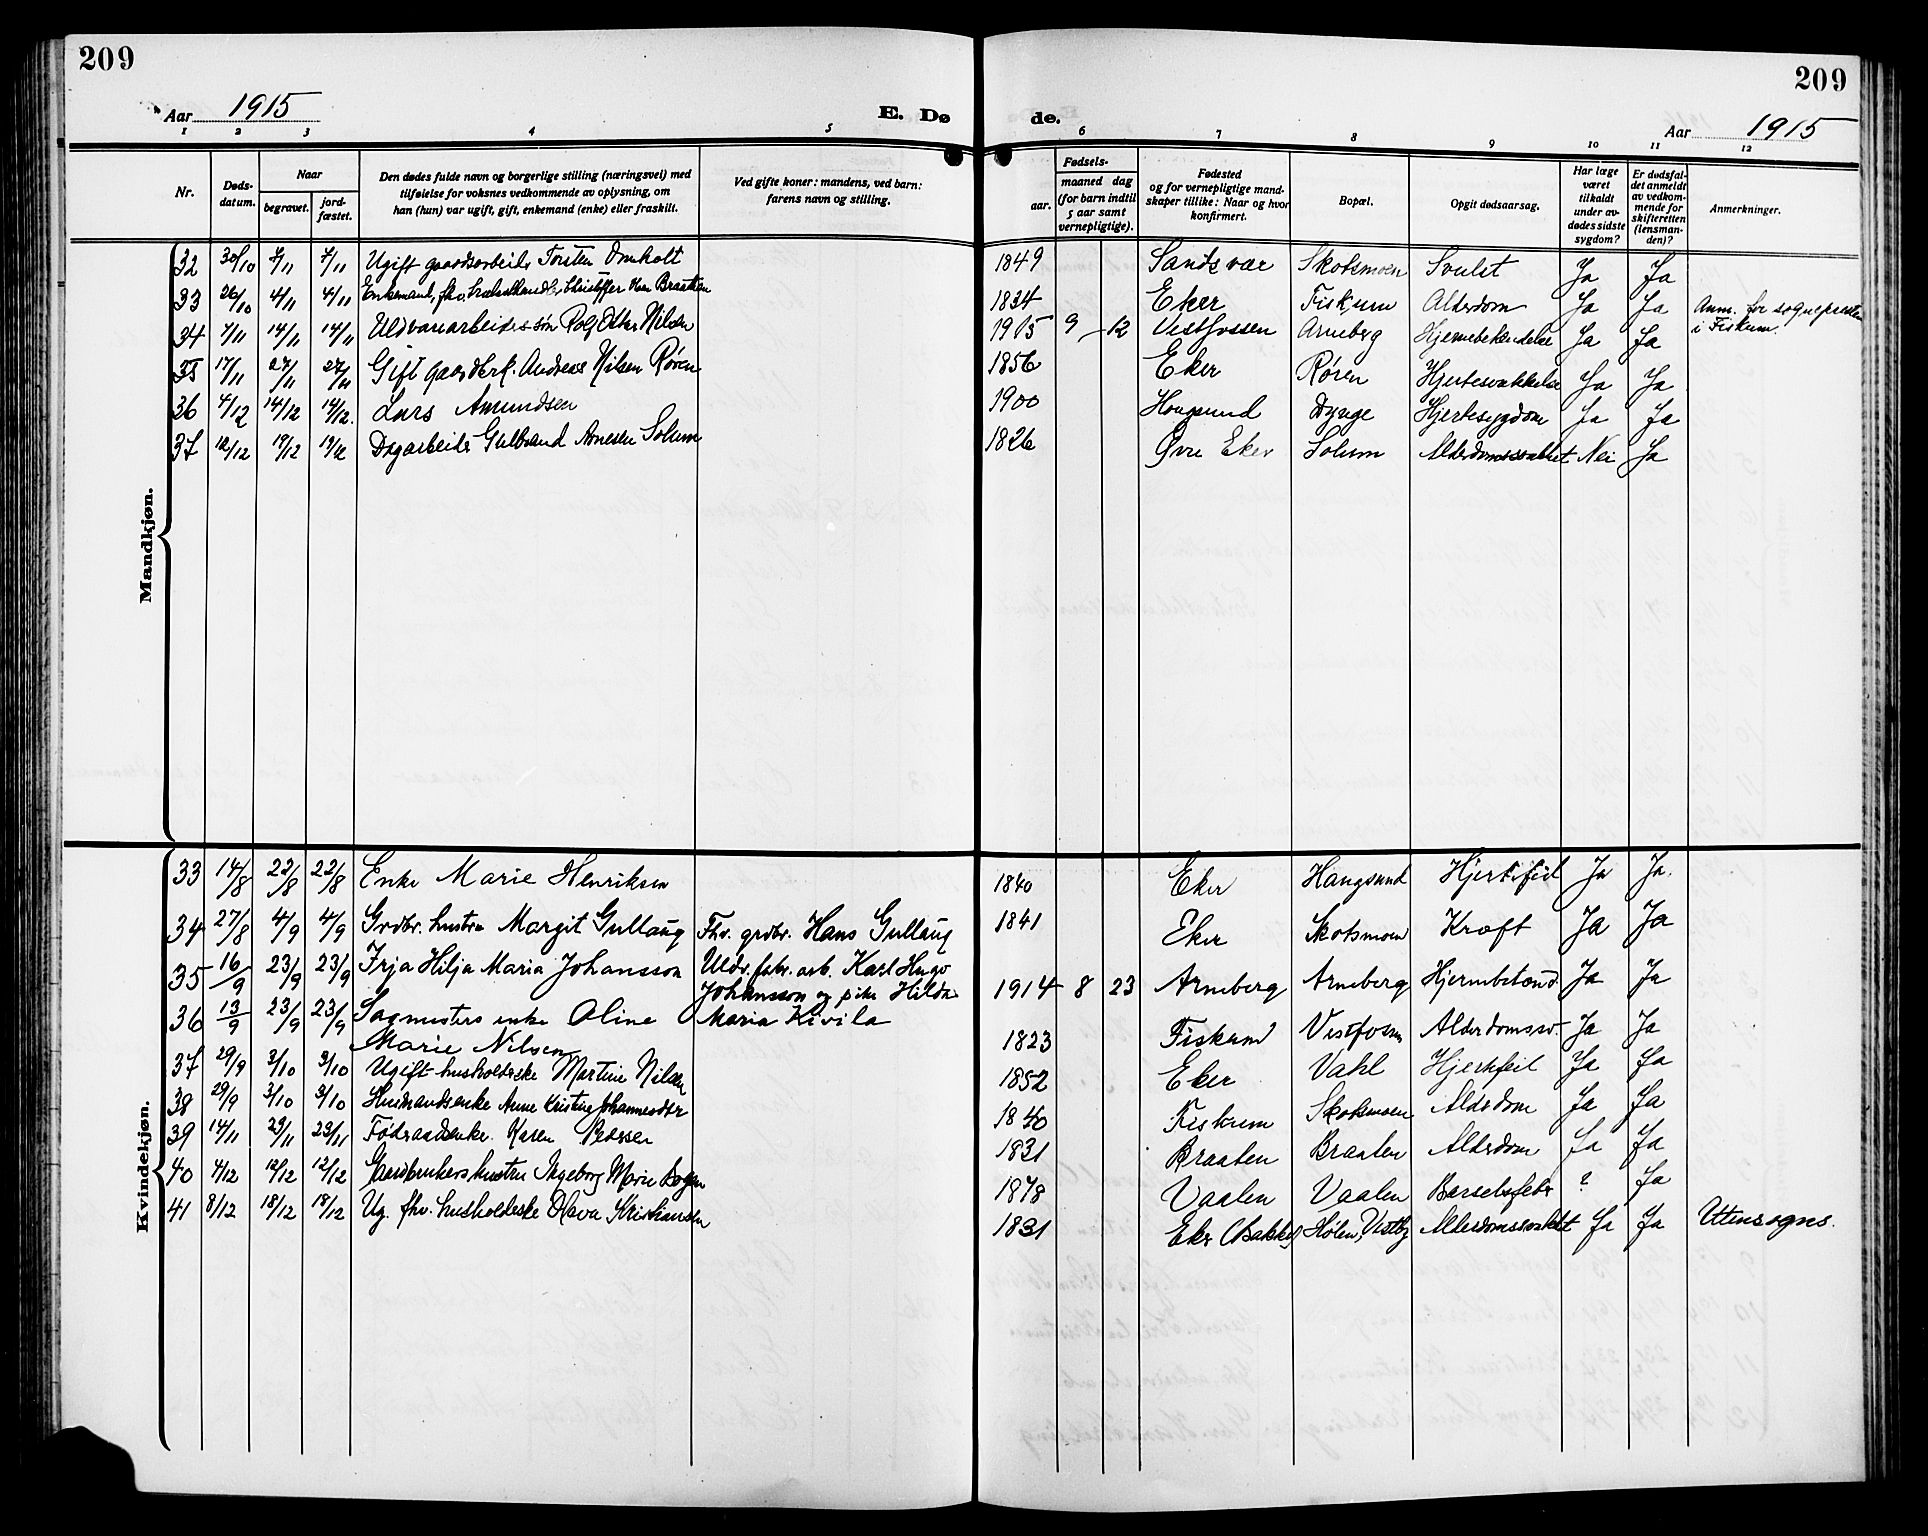 209
209
Aar 1915
E. Dø
de.
Aar 1915
1 2 3 4 5 6 7 8 9 10 11 12
Nr.
Døds-
datum.
Naar
begravet.
jord-
fæstet.
Den dødes fulde navn og borgerlige stilling (næringsvei) med
tilføielse for voksnes vedkommende av oplysning, om
han (hun) var ugift, gift, enkemand (enke) eller fraskilt.
Ved gifte koner: mandens, ved barn:
farens navn og stilling.
Fødsels-
aar.
maaned dag
(for barn indtil
5 aar samt
vernepligtige).
Fødested
og for vernepligtige mand-
skaper tillike: Naar og hvor
konfirmert.
Bopæl.
Opgit dødsaarsag.
Har læge
været
tilkaldt
under av-
dødes sidste
sygdom?
Er dødsfal-
det anmeldt
av vedkom-
mende for
skifteretten
(lensman-
den)?
Anmerkninger.
Mandkjøn.
32 30/10 7/11 7/11 Ugift gaardsarbeider Torsten Omholt 1849 Sandsvær Skotsmoen Svulst Ja Ja
33 26/10 4/11 4/11 Enkemand, fhv. Kristoffer Braathen 1834 Eker Fiskum Alderdom Ja Ja Anm. for sognepresten
i Fiskum.
34 7/11 14/11 14/11 Uldvarearbeiders søn Rolf Otker Nilsen 1915 9 12 Vestfossen Arneberg Hjernebetændelse Ja Ja
35 17/11 27/11 27/11 Gift gaardbrk. Andreas Nilsen Røren 1856 Eker Røren Hjertesvækkelse Ja Ja
36 4/12 14/12 14/12. Lars Amundsen 1900 Hougsund Dynge Hjertesygdom Ja Ja
37 12/12 19/12 19/12 Dagarbeider Gulbrand Arnesen Solum 1826 Øvre Eker Solum Alderdomssvakhet Nei Ja
Kvindekjøn.
33 14/8 22/8 22/8 Enke Marie Henriksen 1840 Eker Haugsund Hjertefeil Ja Ja.
34 27/8 4/9 4/9 Grdbr. hustru Margit Gullaug Fhv. grdbr. Hans Gullaug 1841 Eker Skotsmoen Kræft Ja Ja
35 16/9 23/9 23/9 Irja Hilja Maria Johansson Uldv.fabr. arb. Karl Hugo
Johansson og pike Hilda 1914 8 23 Arneberg Arneberg Hjernebetænd. Ja Ja
36 13/9 23/9 23/9 Sagmesters enke Oline Maria Kivila
Marie Nilsen 1823 Fiskum Vestfossen Alderdomssv. Ja Ja
37 29/9 3/10 3/10 Ugift husholderske Martine Nilsen 1852 Eker Vahl Hjertefeil Ja Ja
38 29/9 3/10 3/10 Husmandsenke Anne Kristine Johannesdtr 1840 Fiskum Skotsmoen Alderdom Ja Ja
39 14/11 23/11 23/11 Føderaadsenke. Karen Pedersen 1831 Braaten Braaten Alderdom Ja Ja
40 4/12 12/12 12/12 Gaardbrukers hustru Ingeborg Marie 1878 Vaalen Vaalen Barselsfeber ? Ja
41 8/12 18/12 18/12 Ug. fhv. husholderske Olava Kristiansen 1831 Eker (Bakke) Hølen, Vestby Alderdomssvakhet Ja Ja Utensogns.